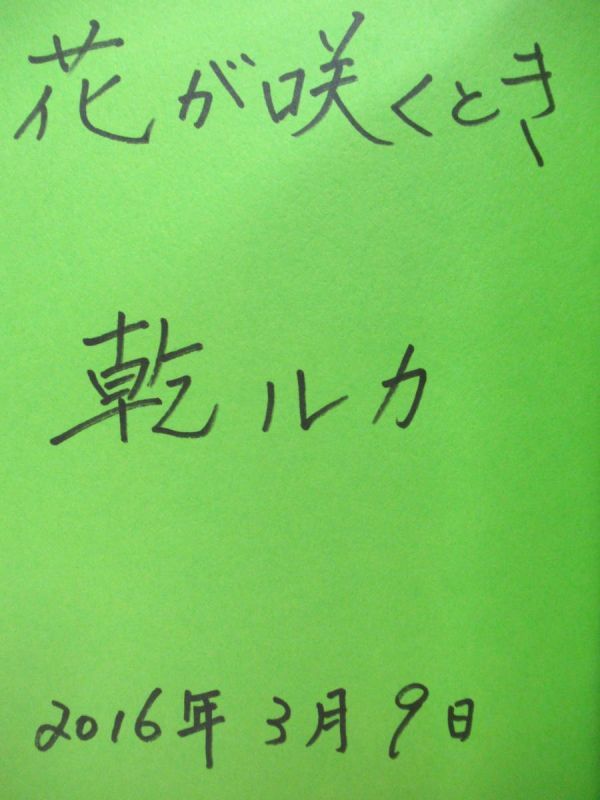 花が咲くとき
乾ルカ
2016年3月9日